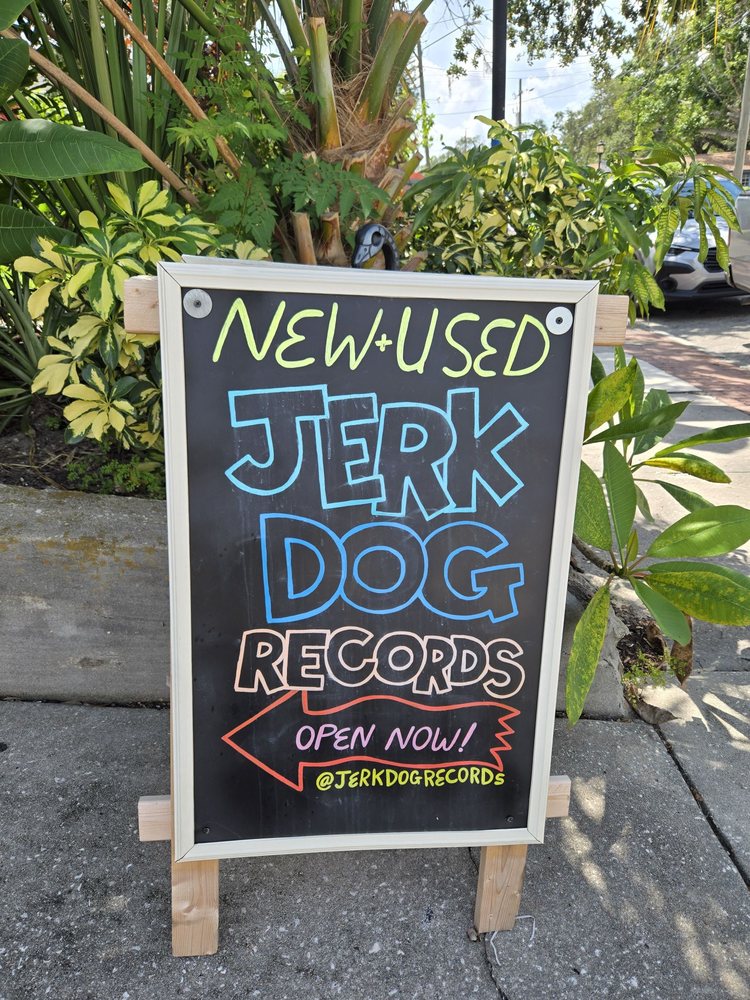 NEW+USED
JERK
DOG
RECORDS
OPEN NOW!
@JERKDOGRECORDS